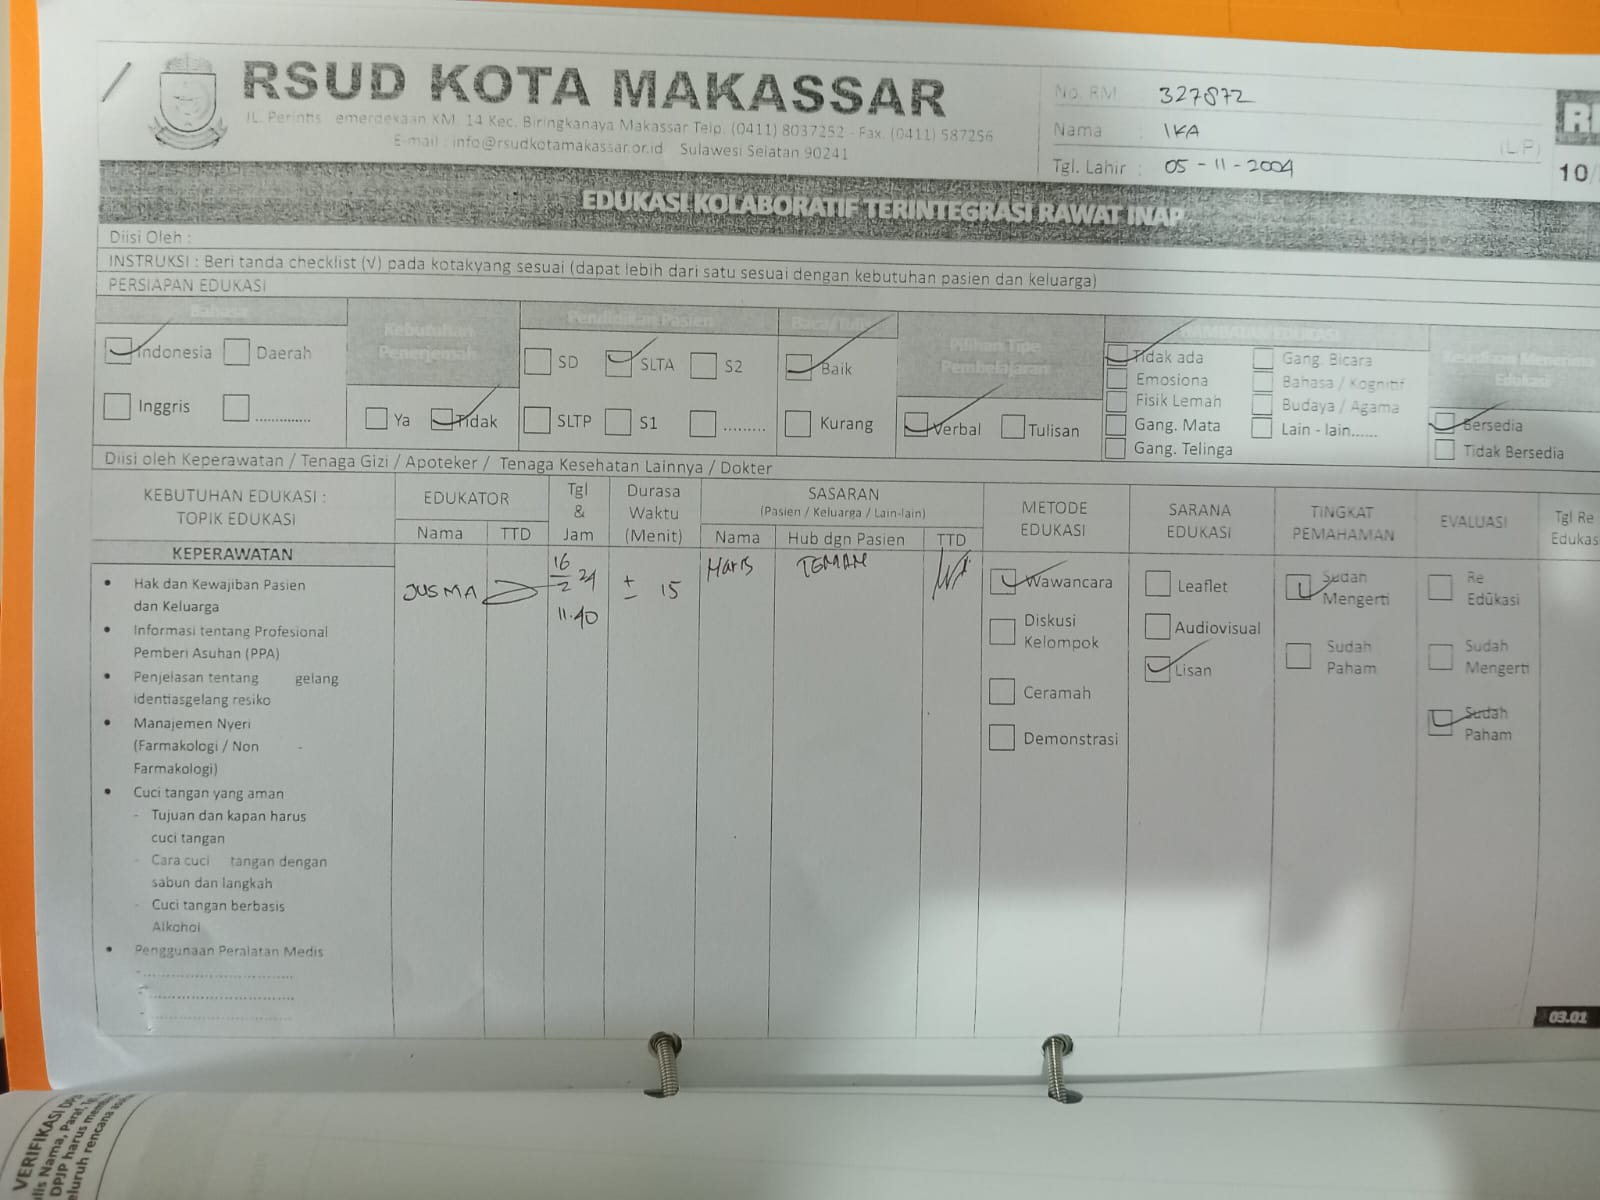 RSUD KOTA MAKASSAR
JL. Perintis emerdekaan KM. 14 Kec. Biringkanaya Makassar Telp. (0411) 8037252 - Fax. (0411) 587256
E-mail : info@rsudkotamakassar.or.id Sulawesi Selatan 90241
No. RM 327872
Nama : IKA
(L/P)
Tgl. Lahir : 05 - 11 - 2004
10/
EDUKASI KOLABORATIF TERINTEGRASI RAWAT INAP
Diisi Oleh :
INSTRUKSI : Beri tanda checklist (√) pada kotakyang sesuai (dapat lebih dari satu sesuai dengan kebutuhan pasien dan keluarga)
PERSIAPAN EDUKASI
Bahasa
Indonesia Daerah
Inggris .............
Kebutuhan
Penerjemah
Ya Tidak
Pendidikan Pasien
SD SLTA S2
SLTP S1 .........
Baca/Tulis
Baik
Kurang
Pilihan Tipe
Pembelajaran
Verbal Tulisan
HAMBATAN EDUKASI
Tidak ada Gang. Bicara
Emosiona Bahasa / Kognitif
Fisik Lemah Budaya / Agama
Gang. Mata Lain - lain......
Gang. Telinga
Kesediaan Menerima
Edukasi
Bersedia
Tidak Bersedia
Diisi oleh Keperawatan / Tenaga Gizi / Apoteker / Tenaga Kesehatan Lainnya / Dokter
KEBUTUHAN EDUKASI :
TOPIK EDUKASI
EDUKATOR
Nama TTD
Tgl
&
Jam
Durasa
Waktu
(Menit)
SASARAN
(Pasien / Keluarga / Lain-lain)
Nama Hub dgn Pasien TTD
METODE
EDUKASI
SARANA
EDUKASI
TINGKAT
PEMAHAMAN
EVALUASI
Tgl Re
Edukas
KEPERAWATAN
• Hak dan Kewajiban Pasien
dan Keluarga
• Informasi tentang Profesional
Pemberi Asuhan (PPA)
• Penjelasan tentang gelang
identiasgelang resiko
• Manajemen Nyeri
(Farmakologi / Non -
Farmakologi)
• Cuci tangan yang aman
- Tujuan dan kapan harus
cuci tangan
- Cara cuci tangan dengan
sabun dan langkah
- Cuci tangan berbasis
Alkohol
• Penggunaan Peralatan Medis
- ..............................
- ..............................
- ..............................
JUSMA
16/2 24
11.40
± 15
Haris
TEMAN
Wawancara
Diskusi
Kelompok
Ceramah
Demonstrasi
Leaflet
Audiovisual
Lisan
Sudah
Mengerti
Sudah
Paham
Re
Edukasi
Sudah
Mengerti
Sudah
Paham
03.01
VERIFIKASI DP
lis Nama, Paraf, T
DPJP harus memb
eluruh rencana as